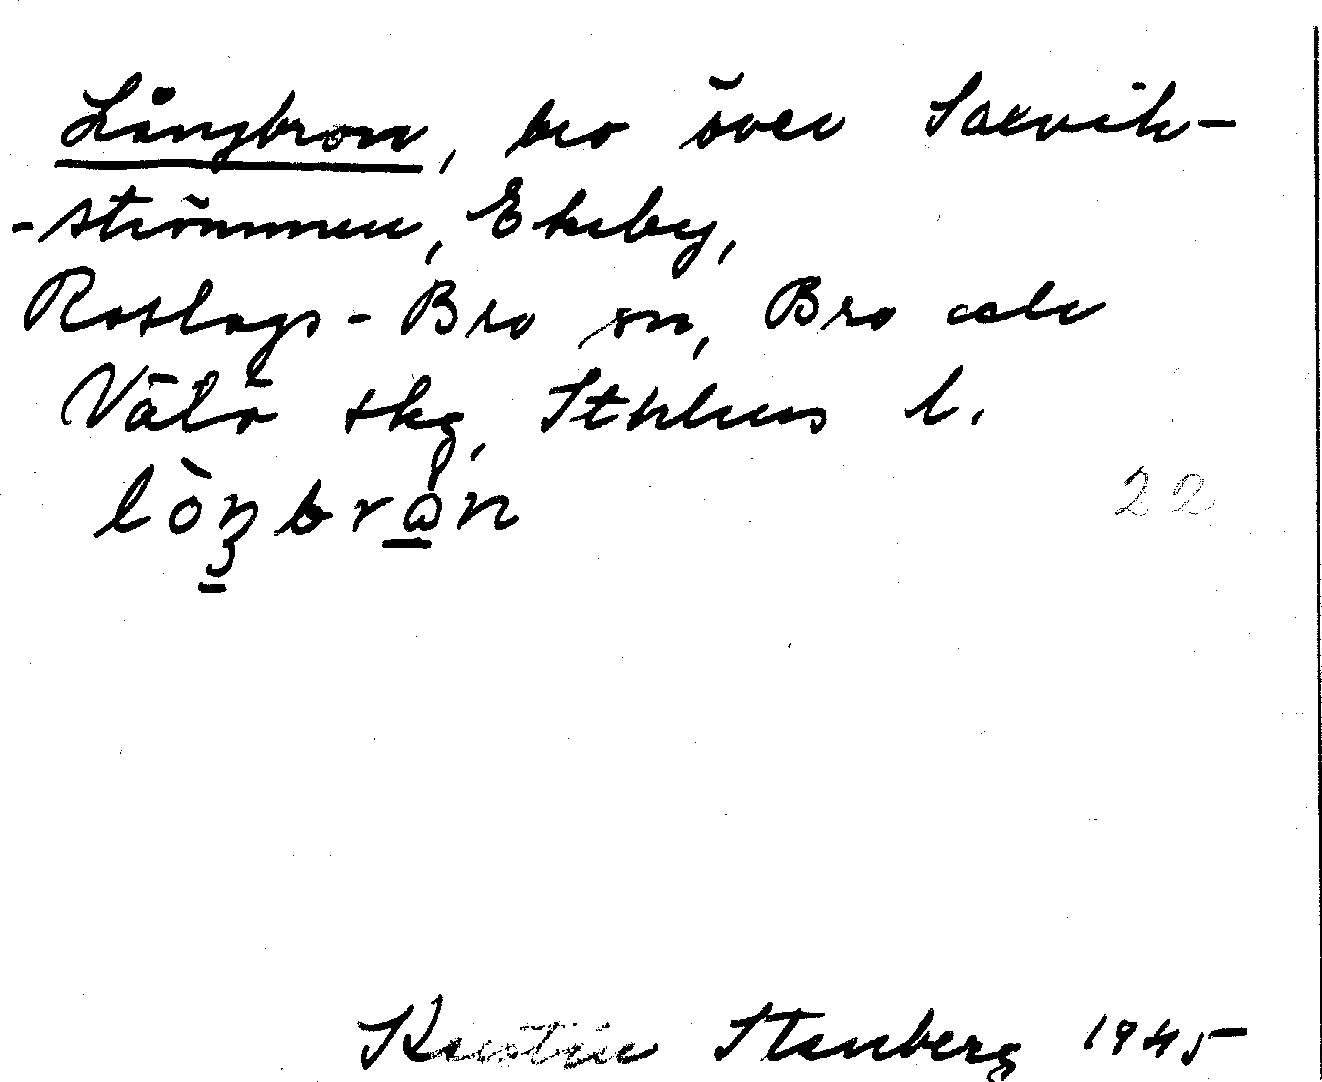 Långbron, bro över Saxvik-
-strömmen, Ekeby,
Roslags-Bro sn, Bro och
Vätö skg, Sthlms l.
22
Kerstin Stenberg 1945